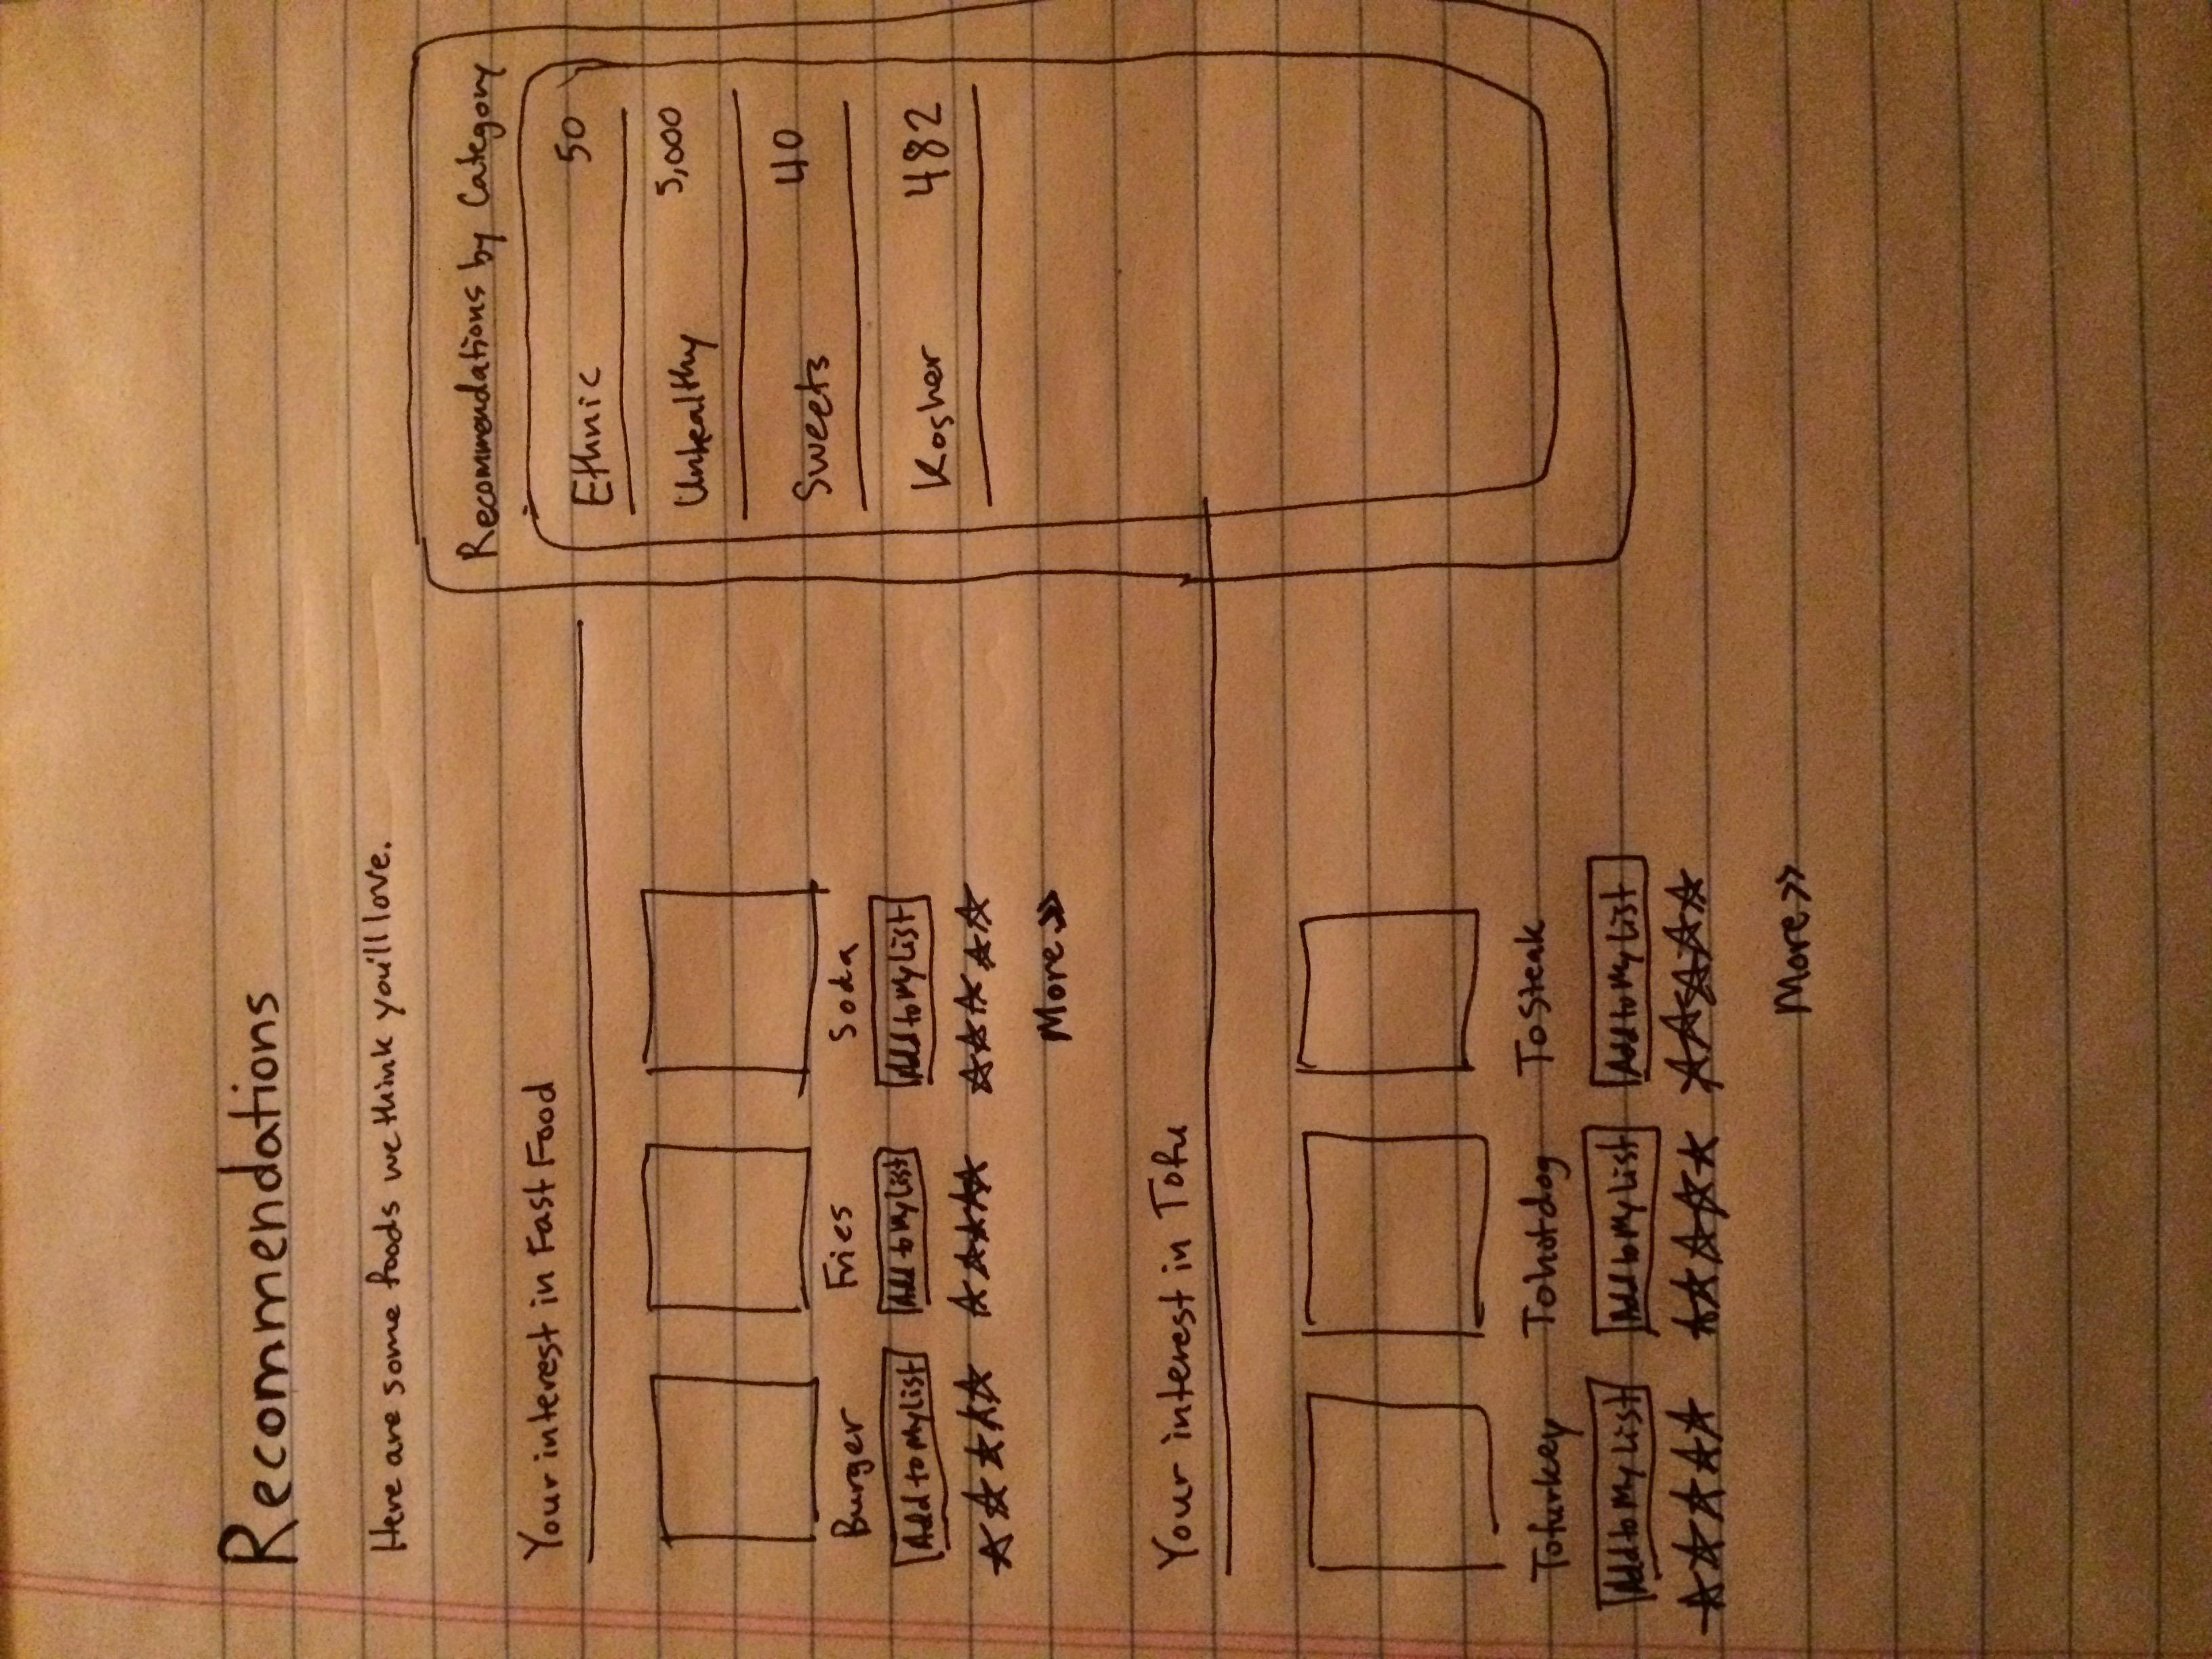 Recommendations
Here are some foods we think you'll love.
Your interest in Fast Food
Burger Fries Soda
Add to My List Add to My List Add to My List
More >>
Your interest in Tofu
Tofurkey Tohotdog ToSteak
Add to My List Add to My List Add to My List
More >>
Recommendations by Category
Ethnic 50
Unhealthy 5,000
Sweets 40
Kosher 482